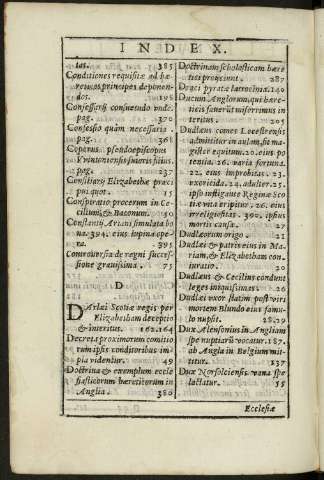 INDEX.
tas. 385
Conditiones requisitæ ad hæ-
reticos principes deponen-
dos. 198
Confessariis consuetudo vnde.
pag. 370
Confessio quàm necessaria.
pag. 368
Coperus pseudoepiscopus
Vvintoniensis suioris filius.
pag. 237
Consiliarij Elizabethæ præci-
pui quot. 15
Conspiratio procerum in Ce-
cilium & Baconum. 50
Constantij Ariani simulata bo-
na. 394. eius inopina ope-
ra. 395
Controuersia de regni succes-
sione grauissima. 75
D
DArlæi Scotiæ regis per
Elizabetham deceptio
& interitus. 162.164
Decreta proximorum comitio
rum ipsis conditoribus im-
pia videntur. 49
Doctrina & exemplum eccle
siasticorum hæretitorum in
Anglia. 380
Doctrinam scholasticam hære
tici proijciunt. 287
Draci pyratæ latrocinia. 140
Ducum Angliorum, qui hære-
ticis fauerut miserrimus in
teritus. 205
Dudlæus comes Locestrensis
admittitur in aulam, fit ma-
gister equitum. 20. eius po-
tentia. 26. varia fortuna.
22. eius improbitas. 23.
vxoricida. 24. adulter. 25.
ipso instigante Reginæ Sco
tiæ vita eripitur. 26. eius
irreligiositas. 300. ipsius
mortis causa. 27
Dudlæorum origo 21
Dudlæi & patris eius in Ma-
riam, & Elizabetham con-
iuratio. 20
Dudlæus & Cecilius condunt
leges iniquissimas. 26
Dudlæi vxor statim post viri
mortem Blundo eius famu-
lo nupsit. 28.29
Dux Alensonius in Angliam
spe nuptiarũ vocatur. 187.
ab Angla in Belgium mit-
titur. 337
Dux Norfolciensis vana spe
lactatur. 55
Ecclesiæ